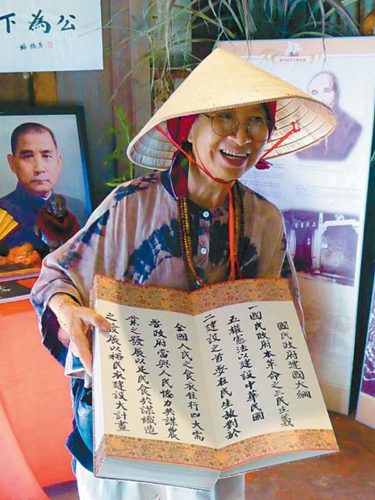 下為公
國民政府建國大綱
一國民政府本革命之三民主義
五權憲法以建設中華民國
二建設之首要在民生故對於
全國人民之食衣住行四大需
要政府當與人民協力共謀農
業之發展以足民食共謀織造
之發展以裕民衣建設大計畫